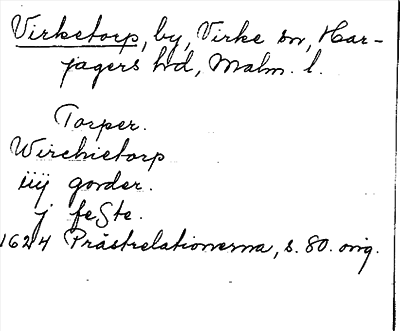 Virketorp, by, Virke sn, Har-
jagers hd, Malm. l.
Torper.
Wirchietorp
iiij gorder.
j feste.
1624 Prästrelationerna, s. 80. orig.